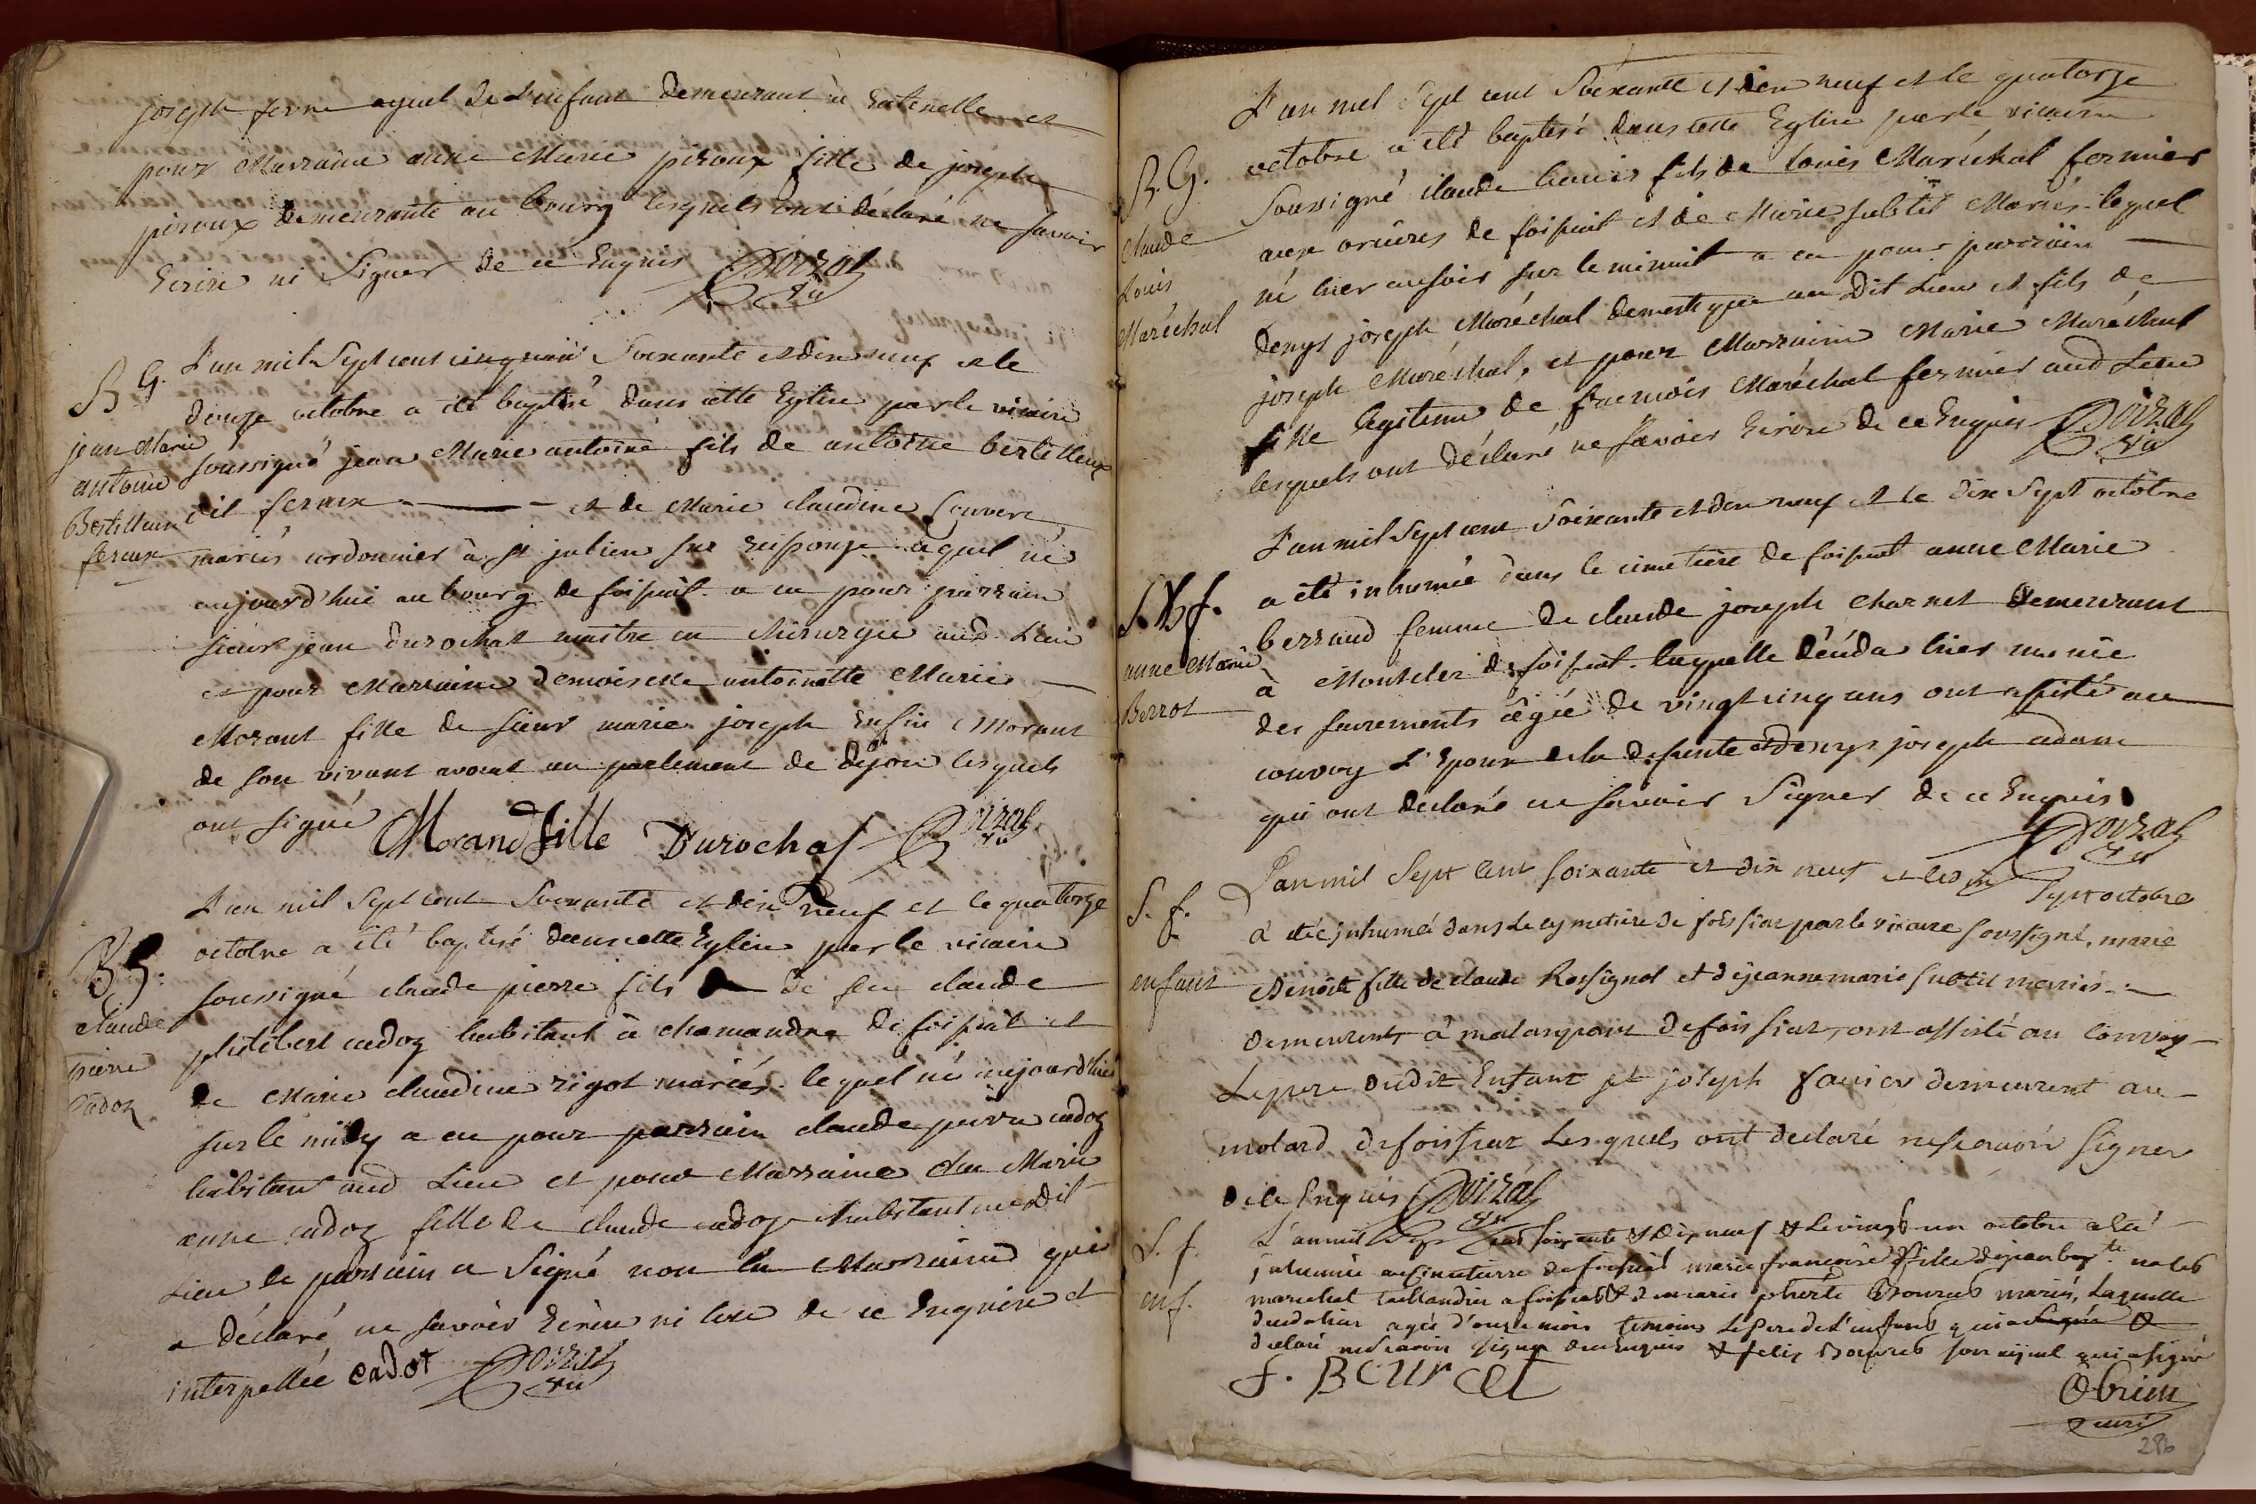 joseph ferne ayeul de l'enfant demeurant à
pour Marraine anne Marie piroux fille de joseph
piroux demeurante au bourg lesquels ont déclaré ne savoir
Ecrire ni Signer de ce Enquis Doizat
Vic
B G.
jean Marie
antoine
Bertilleux
fereux
L'an mil Sept cent cinquan Soixante et dix neuf et le
douze octobre a été baptisé dans cette Eglise par le vicaire
soussigné jean Marie antoine fils de antoine bertilleux
dit fereux et de Marie claudine
mariés cordonnier à st julien sur Reissouze lequel né
aujourd'hui au bourg de foissiat a eu pour parrain
sieur jean durochat maitre en chirurgie aud. Lieu
et pour Marraine demoiselle antoinette Marie
Morant fille de sieur marie joseph Morant
de son vivant avocat au parlement de dijon lesquels
ont signé Morand fille Durochat Doizat
Vic
B G.
claude
pierre
Cadoz
L'an mil Sept cent Soixante et dix neuf et le quatorze
octobre a été baptisé dans cette Eglise par le vicaire
soussigné claude pierre fils de feu claude
philibert cadoz habitant à chamandre de foissiat et
de Marie claudine rigot mariés. lequel né aujourd'hui
sur le midy a eu pour parrain claude pierre cadoz
habitant aud Lieu et pour Marraine Marie
anne cadoz fille de claude cadoz habitant au dit
Lieu le parrain a Signé non la Marraine qui
a déclaré ne savoir Ecrire ni lire de ce Enquise et
interpellée cadot Doizat
Vic
B. G.
claude
Louis
Maréchal
L'an mil Sept cent Soixante et dix neuf et le quatorze
octobre a été baptisé dans cette Eglise par le vicaire
Soussigné claude Louis fils de Louis Maréchal fermier
aux de foissiat et de Marie subtil Mariés lequel
né hier au soir sur le minuit a eu pour parrain
denys joseph Maréchal domestique au Dit Lieu et fils de
joseph Maréchal, et pour Marraine Marie Maréchal
fille legitime de francois Maréchal fermier aud Lieu
lesquels ont déclaré ne Savoir Ecrire de ce Enquis Doizat
Vic
S. f.
anne Marie
Berrot
L'an mil Sept cent Soixante et dix neuf et le dix Sept octobre
a été inhumée dans le cimetiere de foissiat anne Marie
berraud femme de claude joseph charnet demeurant
à Montcler de foissiat. laquelle décéda hier munie
des sacrements âgée de vingt cinq ans ont assisté au
convoy L'Epoux de la defunte et denys joseph adam
qui ont declaré ne savoir Signer de ce Enquis
Doizat
Vic
S. f.
enfant
L'an mil Sept cent soixante et dix neuf et le dix Sept octobre
a été inhumé dans le cymetiere de foissiat par le vicaire soussigné, marie
Benoite fille de claude Rossignol et de jeanne marie subtil mariés
demeurents à de foissiat, ont assisté au convoy
Le pere dudit Enfant et joseph favier demeurent au
molard de foissiat Lesquels ont declaré ne scavoir Signer
de ce Enquis Doizat
Vic
S. f.
enf.
L'an mil Sept cent soixante & Dix neuf & Le vingt un octobre a été
inhumée au cimetierre de foissiat marie francoise fille de jean bapte.
marechal taillandier a foissiat & de marie Bourcet mariés, Laquelle
agée d'onze mois temoins Le Pere de L'enfant qui a signé &
declaré ne scavoir signer de ce Enquis & felix Bourcet son ayeul qui a signé
f. BOUrCet
Obrun
curé
286